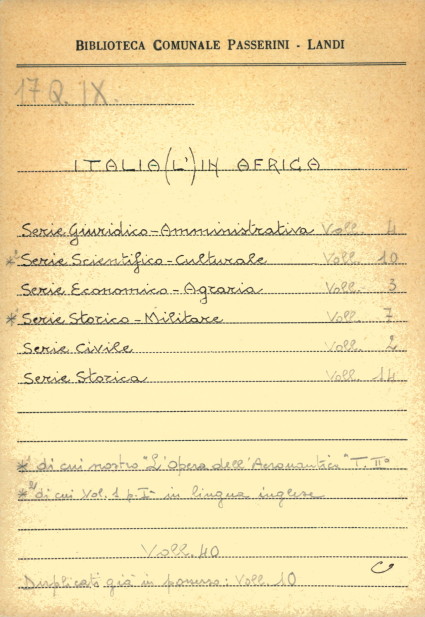 BIBLIOTECA COMUNALE PASSERINI - LANDI
17 Q. IX.
ITALIA (L') IN AFRICA
Serie Giuridico-Amministrativa Voll. 4
*² Serie Scientifico-Culturale Voll. 10
Serie Economico-Agraria Voll. 3
* Serie Storico-Militare Voll. 7
Serie Civile Voll. 2
Serie Storica Voll. 14
*¹ di cui nostro "L'Opera dell'Aeronautica" T. II°
*² di cui Vol. 1 p. I in lingua inglese
Voll. 40
Duplicati già in possesso: Voll. 10